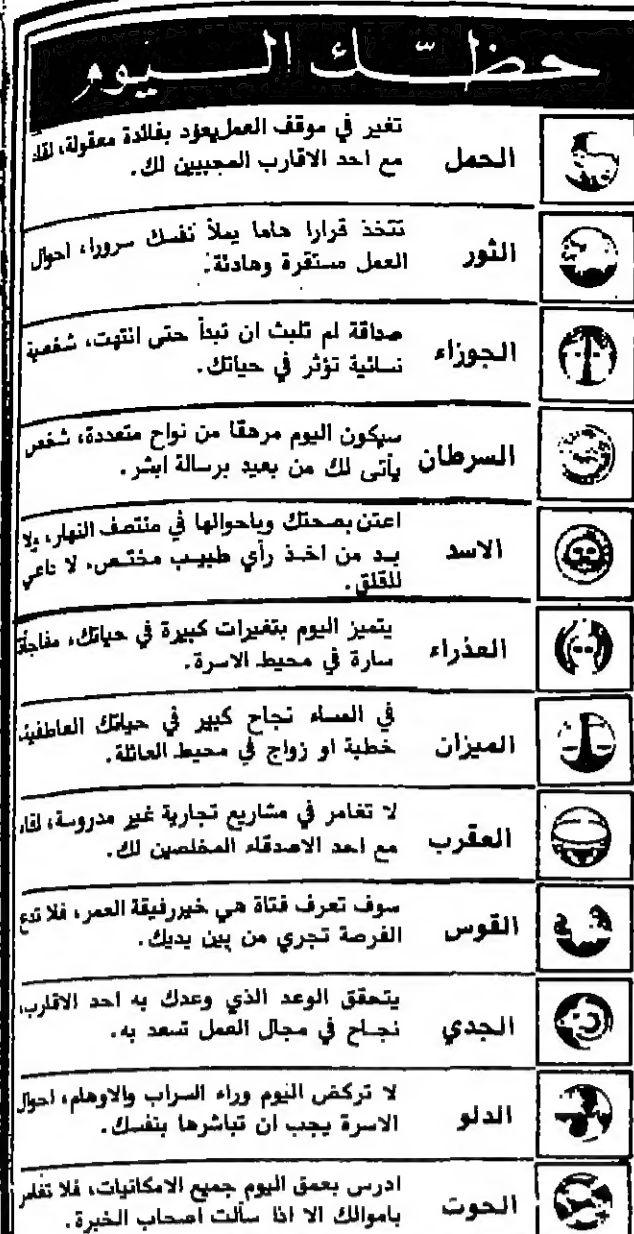 حظك اليوم
الحمل
تغير في موقف العمل يعود بفائدة معقولة، لقاء
مع احد الاقارب المحببين لك.
الثور
تتخذ قرارا هاما يملأ نفسك سرورا، احوال
العمل مستقرة وهادئة.
الجوزاء
صداقة لم تلبث ان تبدأ حتى انتهت، شخصية
نسائية تؤثر في حياتك.
السرطان
سيكون اليوم مرهقا من نواح متعددة، شخص
يأتى لك من بعيد برسالة ابشر.
الاسد
اعتن بصحتك وباحوالها في منتصف النهار، ولا
بد من اخذ رأي طبيب مختص، لا داعي
للقلق.
العذراء
يتميز اليوم بتغيرات كبيرة في حياتك، مفاجأة
سارة في محيط الاسرة.
الميزان
في المساء نجاح كبير في حياتك العاطفية،
خطبة او زواج في محيط العائلة.
العقرب
لا تغامر في مشاريع تجارية غير مدروسة، لقاء
مع احد الاصدقاء المخلصين لك.
القوس
سوف تعرف فتاة هي خير رفيقة العمر، فلا تدع
الفرصة تجري من بين يديك.
الجدي
يتحقق الوعد الذي وعدك به احد الاقارب،
نجاح في مجال العمل تسعد به.
الدلو
لا تركض اليوم وراء السراب والاوهام، احوال
الاسرة يجب ان تباشرها بنفسك.
الحوت
ادرس بعمق اليوم جميع الامكانيات، فلا تغامر
باموالك الا اذا سألت اصحاب الخبرة.